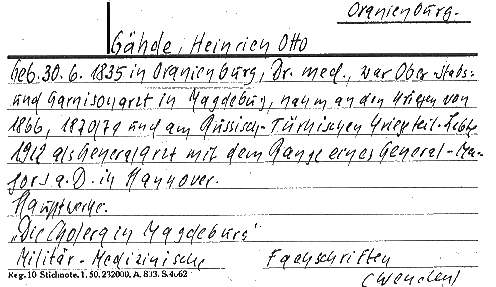 Oranienburg.
Gähde, Heinrich Otto
Geb. 30. 6. 1835 in Oranienburg, Dr. med., war Ober-Stabs-
und Garnisonarzt in Magdeburg, nahm an den Kriegen von
1866, 1870/71 und am Russisch-Türkischen Krieg teil. Lebte
1912 als Generalarzt mit dem Range eines General-Ma-
jors a. D. in Hannover.
Hauptwerke.
„Die Cholera in Magdeburg"
Militär-Medizinische Fachschriften
(Wendend)
Reg. 10 Stichnote. 1. 50. 232000. A. 813. S. 4062